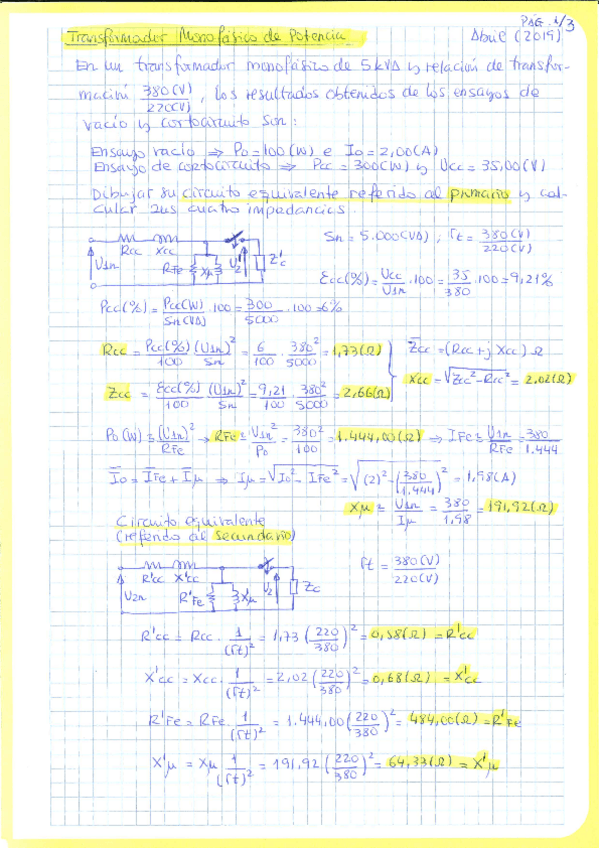 PÁG. 1/3
Transformador Monofásico de Potencia
Abril (2019)
En un transformador monofásico de 5kVA y relación de transfor-
mación 380(V)/220(V), los resultados obtenidos de los ensayos de
vacío y cortocircuito son:
Ensayo vacío ⇒ Po=100(W) e Io=2,00(A)
Ensayo de cortocircuito ⇒ Pcc=300(W) y Ucc=35,00(V)
Dibujar su circuito equivalente referido al primario y cal-
cular sus cuatro impedancias.
Rcc Xcc
U1n RFe Xμ U'2 Z'c
Sn = 5.000(VA) ; rt = 380(V)/220(V)
Ecc(%) = Ucc/U1n · 100 = 35/380 · 100 = 9,21%
Pcc(%) = Pcc(W)/Sn(VA) · 100 = 300/5000 · 100 = 6%
Rcc = Pcc(%)/100 · (U1n)²/Sn = 6/100 · 380²/5000 = 1,73(Ω)
Zcc = Ecc(%)/100 · (U1n)²/Sn = 9,21/100 · 380²/5000 = 2,66(Ω)
Zcc = (Rcc + j Xcc) Ω
Xcc = √(Zcc² - Rcc²) = 2,02(Ω)
Po(W) ≅ (U1n)²/RFe → RFe ≅ U1n²/Po = 380²/100 = 1.444,00(Ω) ⇒ IFe ≅ U1n/RFe = 380/1.444
Io = IFe + Iμ ⇒ Iμ = √(Io² - IFe²) = √((2)² - (380/1.444)²) = 1,98(A)
Xμ ≅ U1n/Iμ = 380/1,98 = 191,92(Ω)
Circuito equivalente
(referido al secundario)
R'cc X'cc
U2n R'Fe X'μ U2 Zc
rt = 380(V)/220(V)
R'cc = Rcc · 1/(rt)² = 1,73 (220/380)² = 0,58(Ω) = R'cc
X'cc = Xcc · 1/(rt)² = 2,02 (220/380)² = 0,68(Ω) = X'cc
R'Fe = RFe · 1/(rt)² = 1.444,00 (220/380)² = 484,00(Ω) = R'Fe
X'μ = Xμ 1/(rt)² = 191,92 (220/380)² = 64,33(Ω) = X'μ